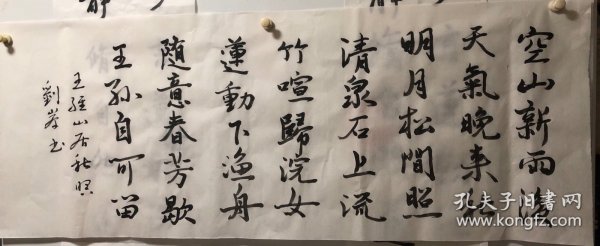 空山新雨後
天氣晚来秋
明月松間照
清泉石上流
竹喧歸浣女
蓮動下漁舟
随意春芳歇
王孫自可留
王維山居秋暝
劉 书
孔夫子旧书网
www.kongfz.com